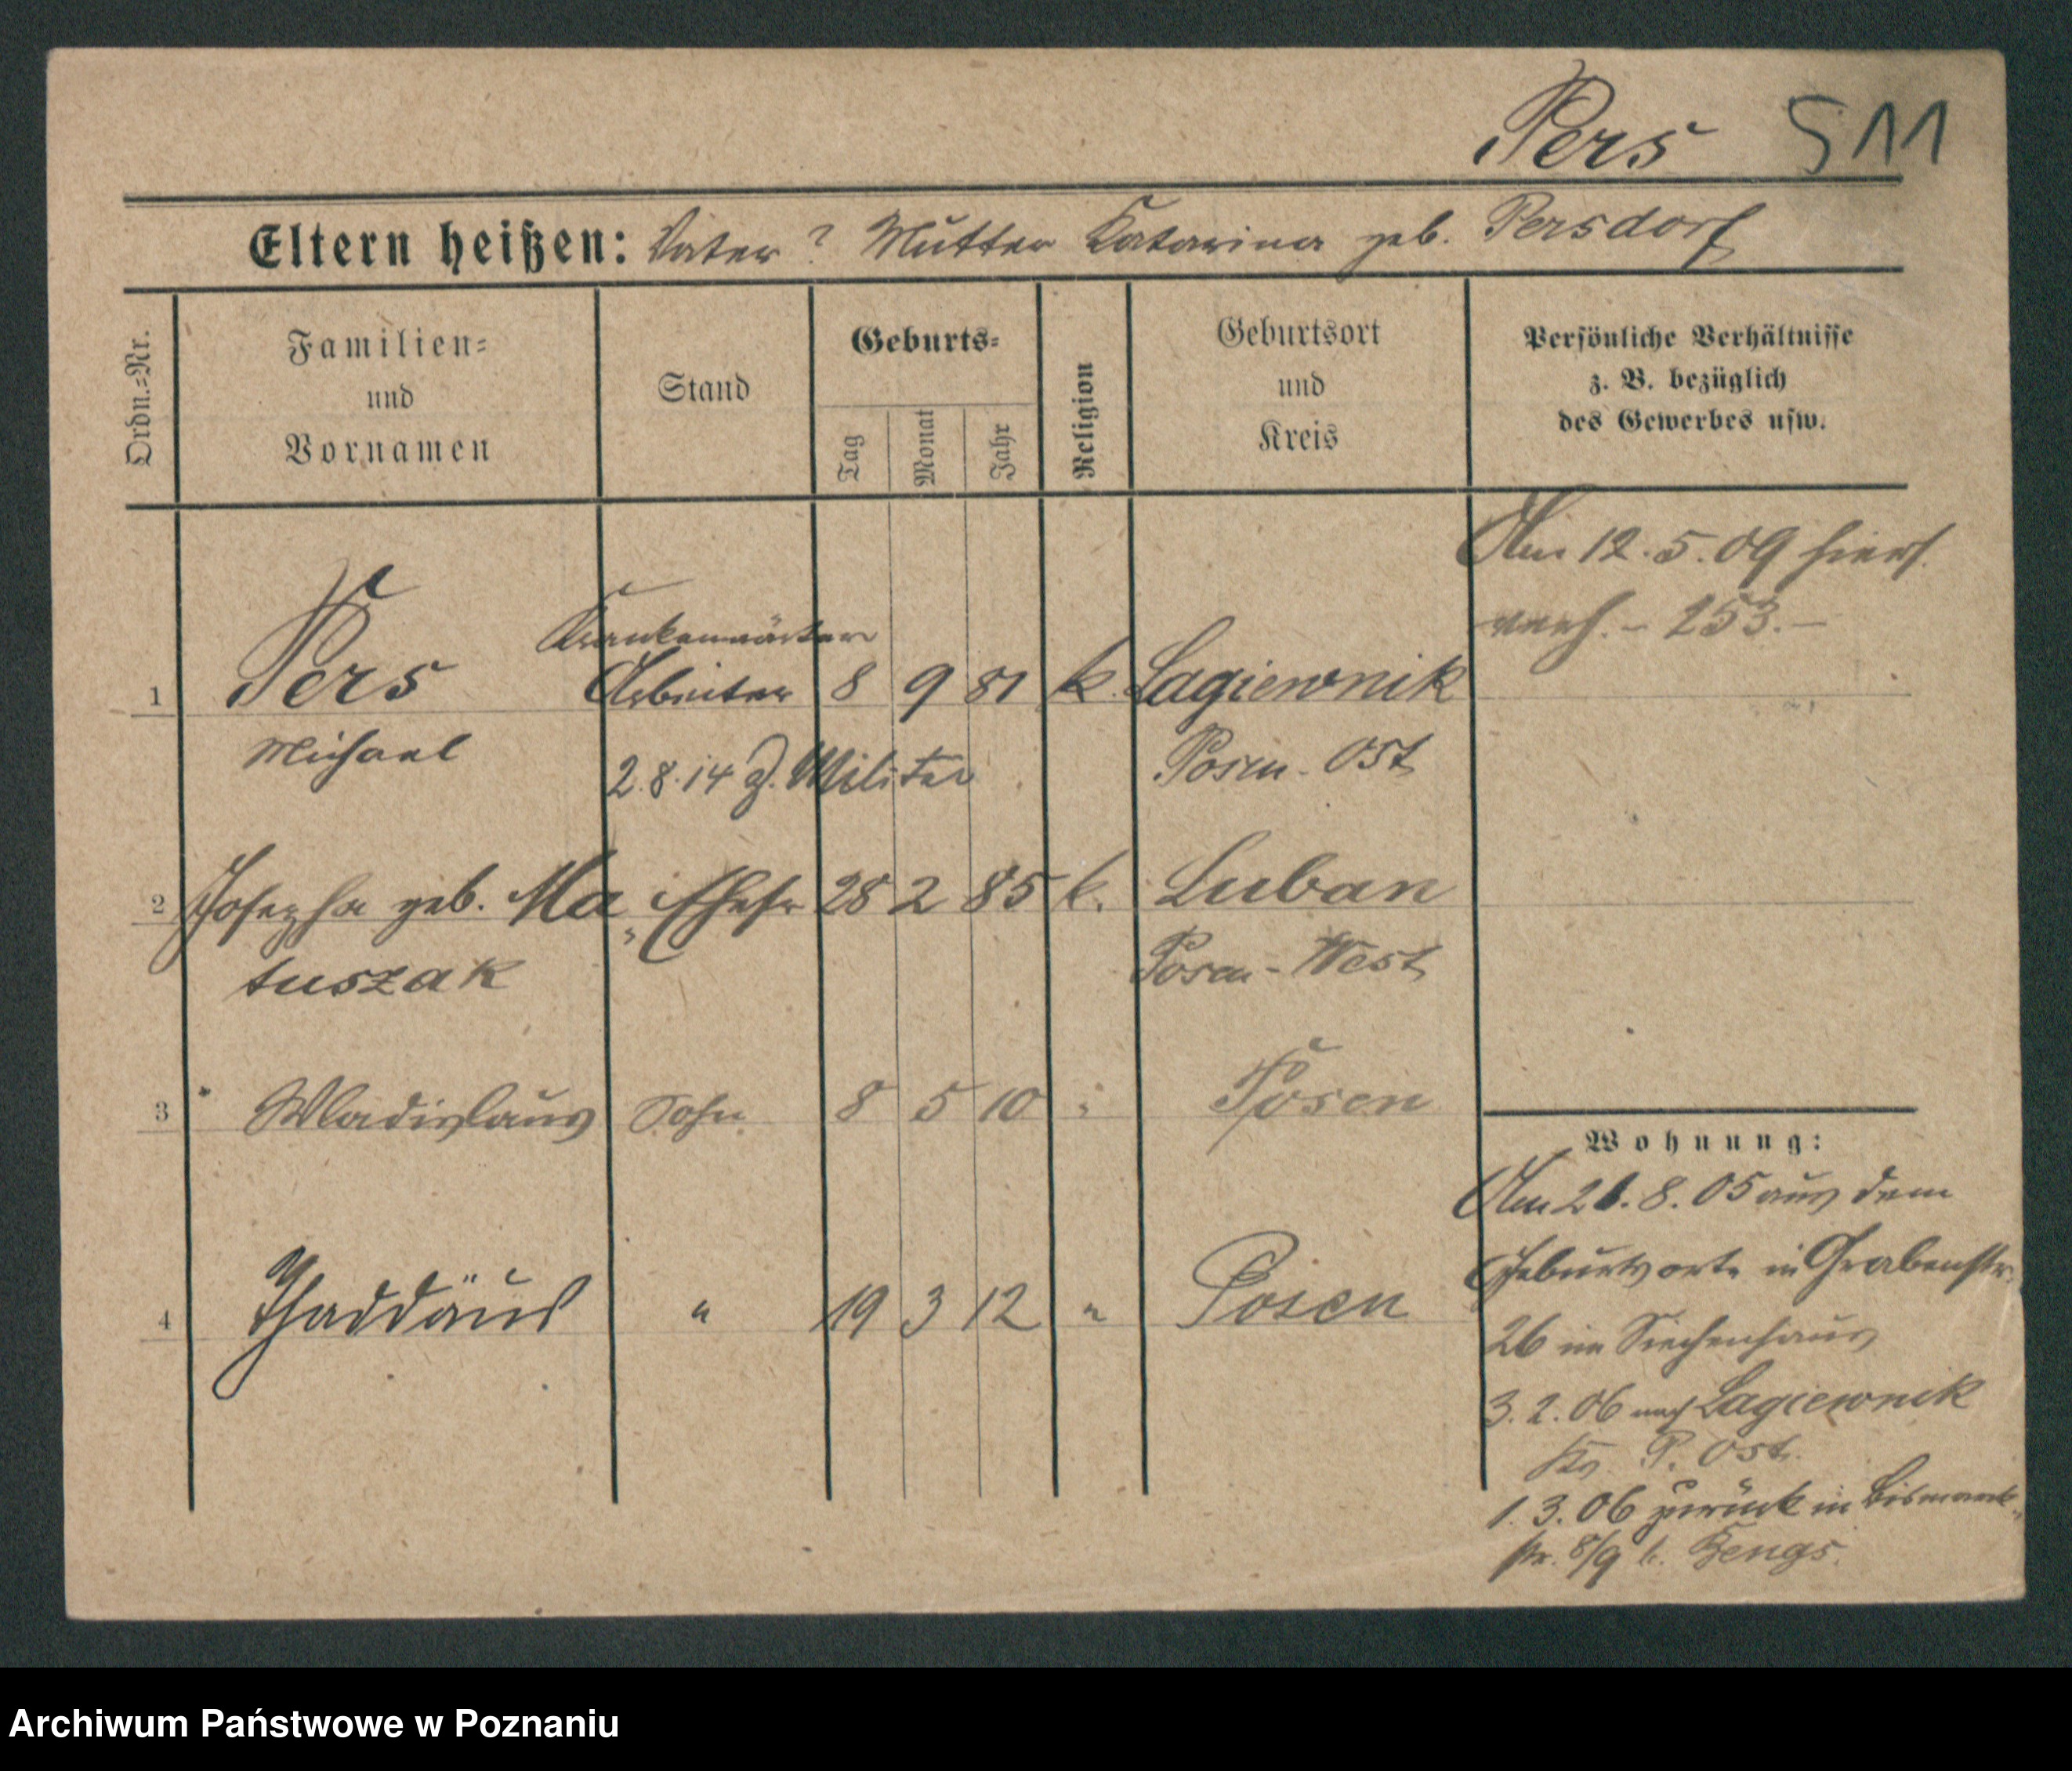 Pers 511
Eltern heißen: Vater? Mutter Katarina geb. Persdorf
Ordn.=Nr.
Familien=
und
Vornamen
Stand
Geburts=
Tag
Monat
Jahr
Religion
Geburtsort
und
Kreis
Persönliche Verhältnisse
z. B. bezüglich
des Gewerbes usw.
Am 12.5.09 hiers.
verh. - 253.-
Krankenwärter
1 Pers Arbeiter 8 9 81 k. Lagiewnik
Michael 2.8.14 z. Militär Posen-Ost
2 Josepha geb. Ma= Ehefr 28 2 85 k. Luban
tuszak Posen-West
3 Wladislaus Sohn 8 5 10 " Posen
4 Thaddäus " 19 3 12 " Posen
Wohnung:
Am 21.8.05 aus dem
Geburtsorte in Grabenstr.
26 im Siechenhaus
3.2.06 nach Lagiewnik
Kr. P. Ost.
1.3.06 zurück in Bismarck=
str. 8/9 b. Zengs.
Archiwum Państwowe w Poznaniu